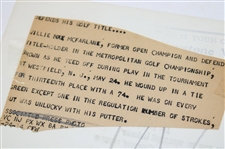 DEFENDS HIS GOLF TITLE....
WILLIE MACFARLANE, FORMER OPEN CHAMPION AND DEFEND
TITLE-HOLDER IN THE METROPOLITAN GOLF CHAMPIONSHIP,
SHOWN AS HE TEED OFF DURING PLAY IN THE TOURNAMENT
AT WESTFIELD, N.J., MAY 24. HE WOUND UP IN A TIE
FOR THIRTEENTH PLACE WITH A 74. HE WAS ON EVERY
GREEN EXCEPT ONE IN THE REGULATION NUMBER OF STROKES,
BUT WAS UNLUCKY WITH HIS PUTTER.
PHOTO